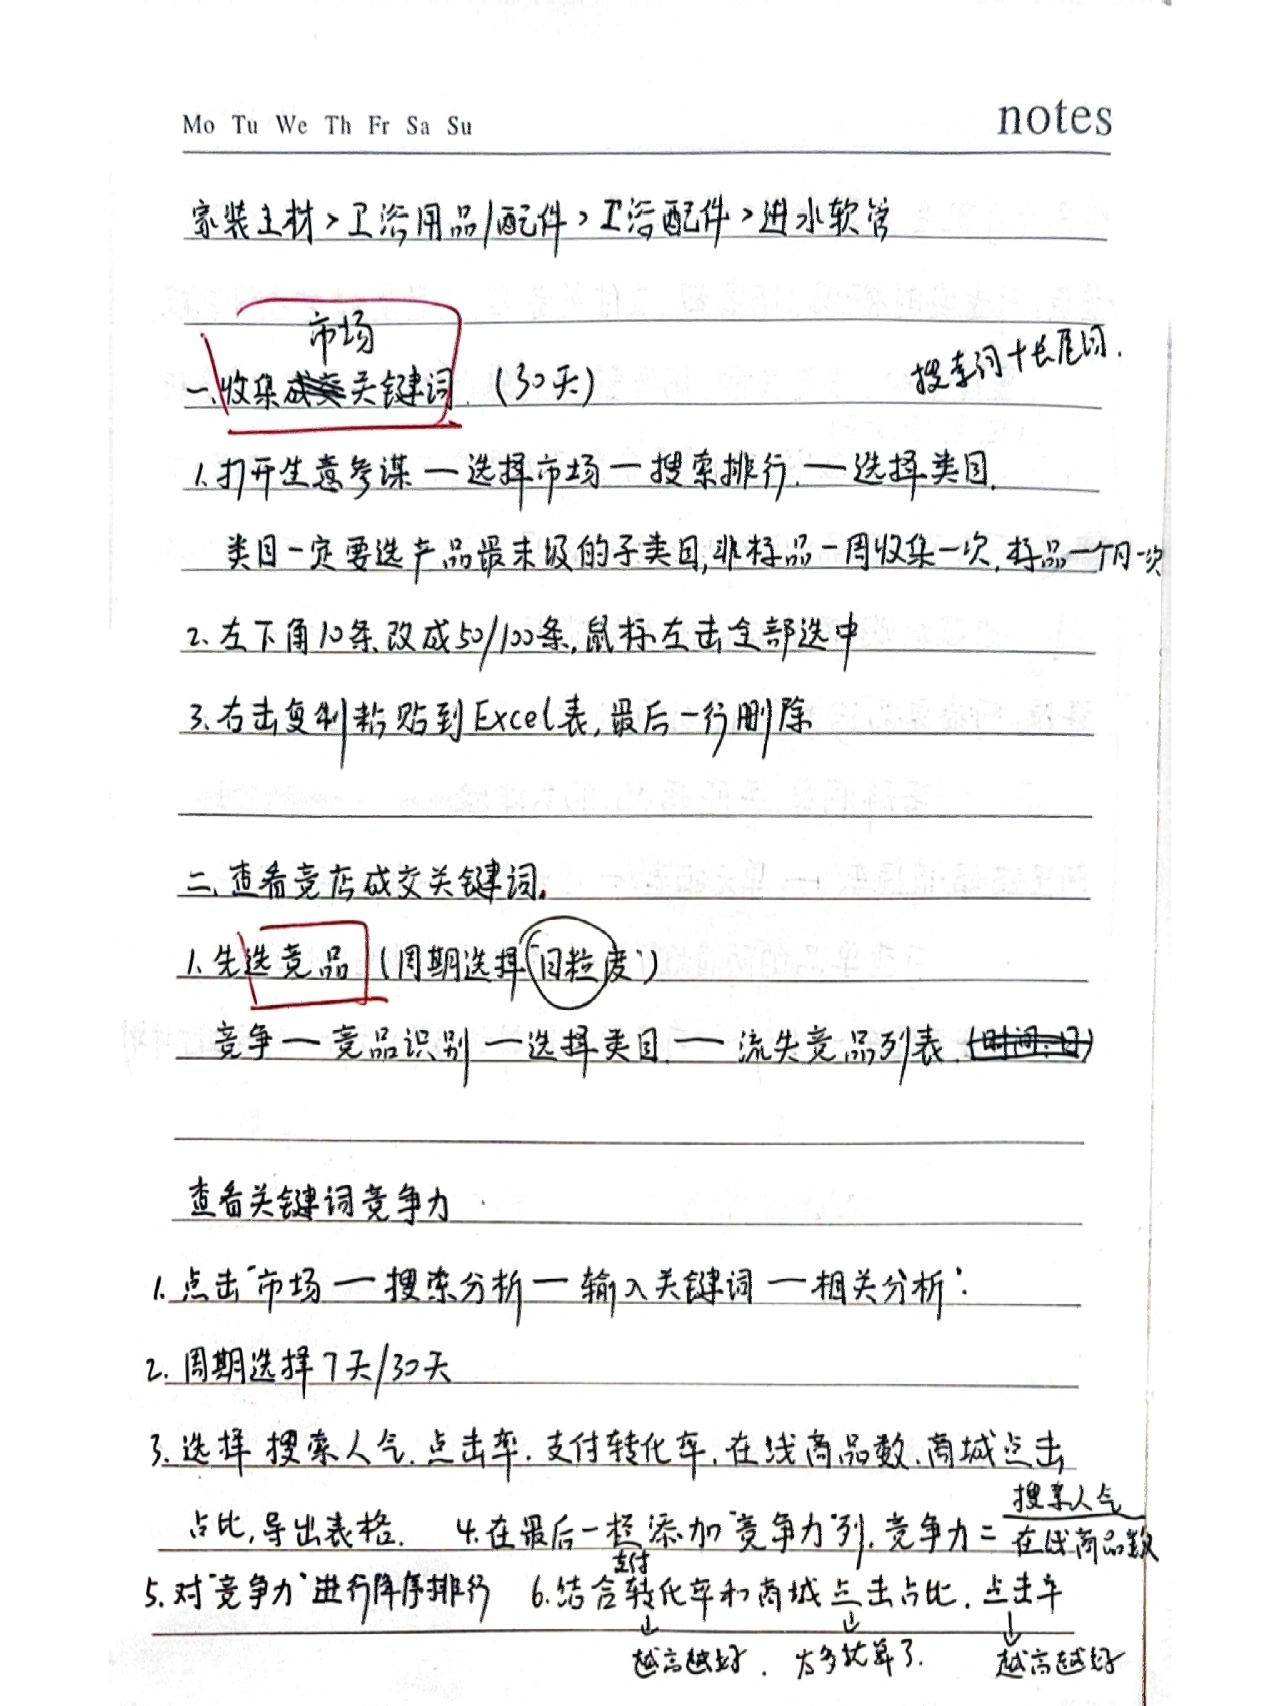 Mo Tu We Th Fr Sa Su
notes
家装主材>卫浴用品/配件>卫浴配件>进水软管
市场
搜索词+长尾词.
一.收集成交关键词.(30天)
1.打开生意参谋—选择市场—搜索排行.—选择类目.
类目一定要选产品最末级的子类目,非标品一周收集一次,标品一个月一次
2.左下角10条改成50/100条,鼠标左击全部选中
3.右击复制粘贴到Excel表,最后一行删除
二.查看竞店成交关键词.
1.先选竞品(周期选择“日粒度”)
竞争—竞品识别—选择类目.—流失竞品列表.(时间:日)
查看关键词竞争力
1.点击“市场—搜索分析—输入关键词—相关分析”.
2.周期选择7天/30天
3.选择 搜索人气.点击率.支付转化率.在线商品数.商城点击
占比,导出表格. 4.在最后一栏添加“竞争力”列.竞争力=搜索人气/在线商品数
支付
5.对“竞争力”进行降序排行 6.结合转化率和商城点击占比.点击率
↓越高越好. ↓太多就算了. ↓越高越好